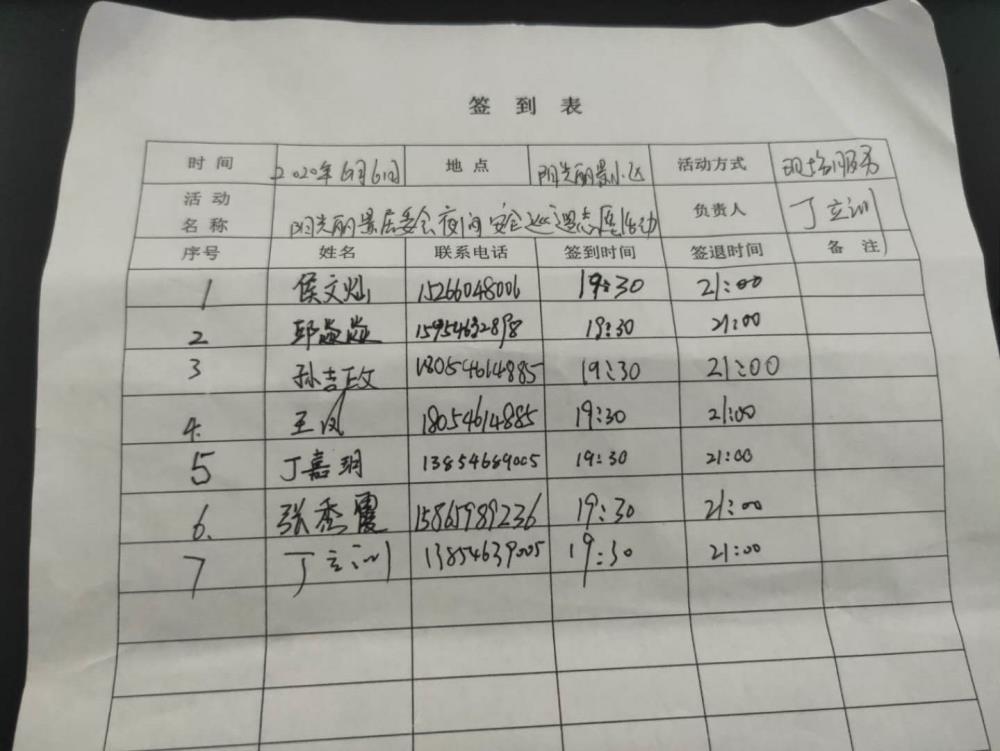 签 到 表
时 间 2020年6月6日 地 点 阳光丽景小区 活动方式 现场服务
活 动 名 称 阳光丽景居委会夜间安全巡逻志愿活动 负责人 丁立训
序号 姓名 联系电话 签到时间 签退时间 备 注
1 侯文灿 15266048006 19:30 21:00
2 郭焱焱 15954632898 19:30 21:00
3 孙吉政 18054614885 19:30 21:00
4. 王凤 18054614885 19:30 21:00
5 丁嘉玥 13854689005 19:30 21:00
6. 张秀霞 15865989236 19:30 21:00
7 丁立训 13854639005 19:30 21:00